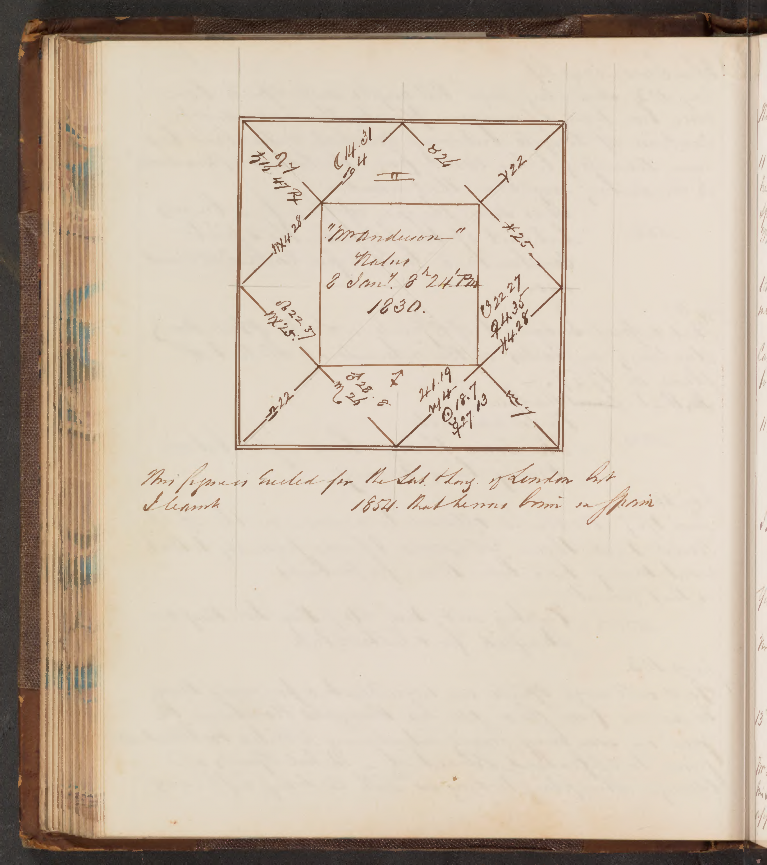 ☾14.31
♋4
♊
♉26
♌7
♄16 47 ℞
♈22
♍4.28
♓25
"Mr Anderson"
Natus
8 Jany. 8h 24' PM
1830.
☊22.37
♍25.
♅4.28
♎22
♂28.8.
♏26
♐
♃1.19
♑4
☉18.7
☿27 13
♒7
This figure is Erected for the Lat. & Long. of London but
I learnt 1854. that he was born in Spain